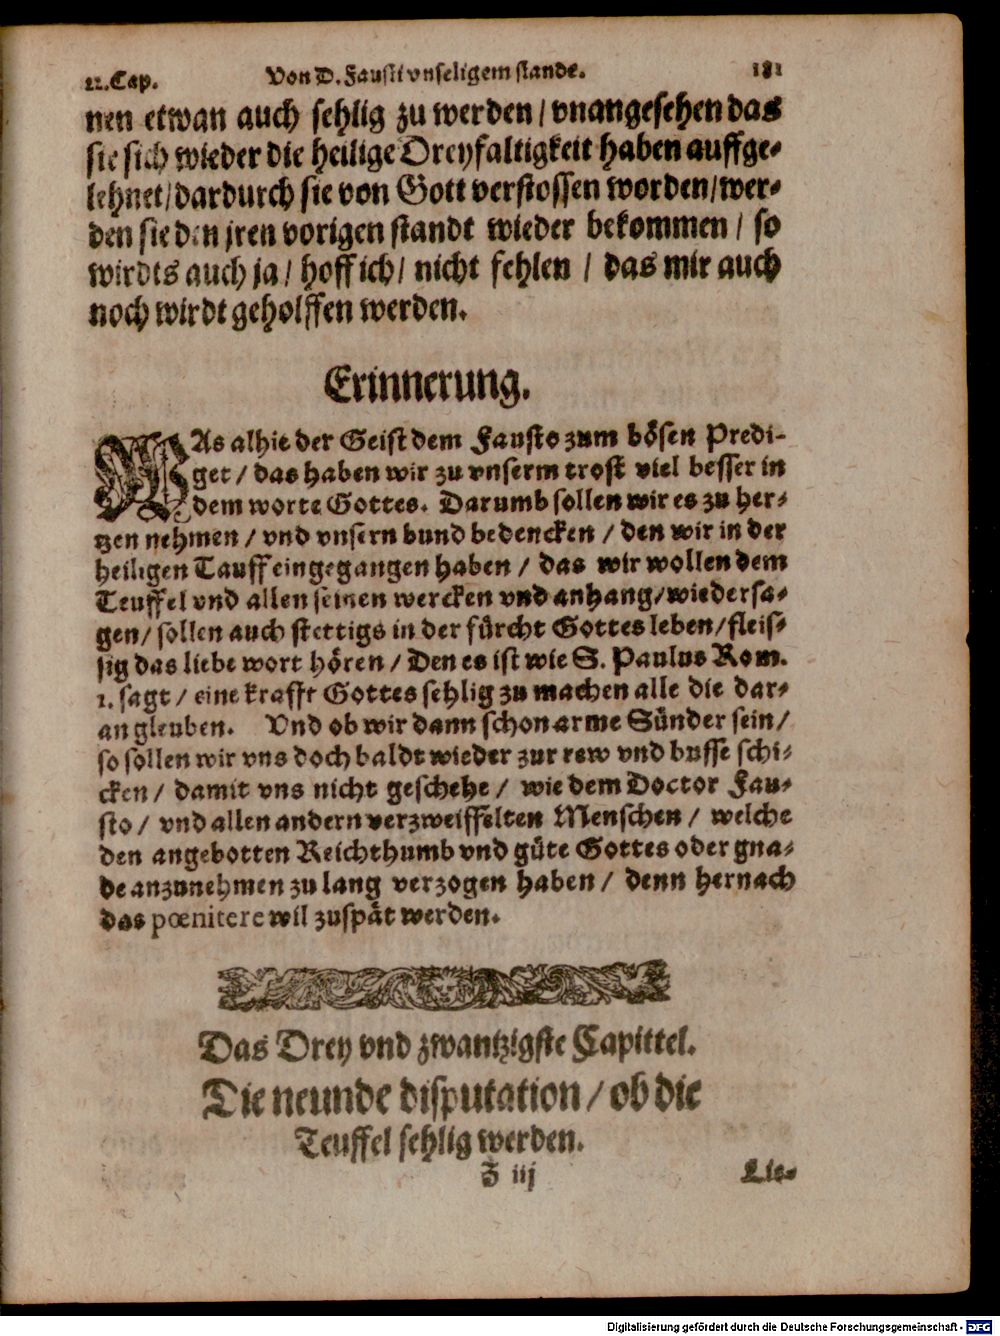 22.Cap. Von D. Fausti vnseligem stande. 181
nen etwan auch sehlig zu werden / vnangesehen das
sie sich wieder die heilige Dreyfaltigkeit haben auffge-
lehnet/dardurch sie von Gott verstossen worden/wer-
den sie den jren vorigen standt wieder bekommen / so
wirdts auch ja / hoff ich / nicht fehlen / das mir auch
noch wirdt geholffen werden.
Erinnerung.
WAs alhie der Geist dem Fausto zum bösen Predi-
get / das haben wir zu vnserm trost viel besser in
dem worte Gottes. Darumb sollen wir es zu her-
tzen nehmen / vnd vnsern bund bedencken / den wir in der
heiligen Tauff eingegangen haben / das wir wollen dem
Teuffel vnd allen seinen wercken vnd anhang/wiedersa-
gen/ sollen auch stettigs in der fürcht Gottes leben/fleis-
sig das liebe wort hören / Den es ist wie S. Paulus Rom.
1. sagt / eine krafft Gottes sehlig zu machen alle die dar-
an gleuben. Vnd ob wir dann schon arme Sünder sein/
so sollen wir vns doch baldt wieder zur rew vnd busse schi-
cken / damit vns nicht geschehe / wie dem Doctor Fau-
sto / vnd allen andern verzweiffelten Menschen / welche
den angebotten Reichthumb vnd güte Gottes oder gna-
de anzunehmen zu lang verzogen haben / denn hernach
das pœnitere wil zuspät werden.
Das Drey vnd zwantzigste Capittel.
Die neunde disputation / ob die
Teuffel sehlig werden.
Z iij Lie-
Digitalisierung gefördert durch die Deutsche Forschungsgemeinschaft - DFG